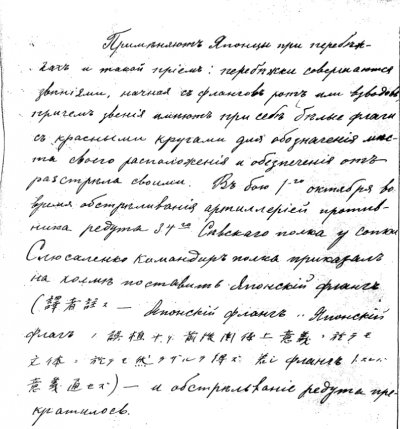 Примѣняютъ Японцы при перебѣж-
кахъ и такой пріемъ: перебѣжки совершаются
звѣніями, начная съ фланговъ ротъ или взводовъ
причемъ звенія имѣютъ при себѣ бѣлые флаги
съ красными кругами для обозначенія мѣс-
та своего расположенія и обезпеченія отъ
разстрѣла своими. Въ бою 1-го октября во
время обстрѣливанія артиллеріей против-
ника редута 34го Сѣвскаго полка у сопки
Слюсаренко командиръ полка приказалъ
на холмѣ поставить Японскій флангъ
(譯者註ス — Японскій флангъ .. Японскій
флагъ ノ誤植ナリ前後関係上意義ニ於テモ
文体ニ於テモ флангъ
意義通セズ) — и обстрѣльваніе редута пре-
кратилось.